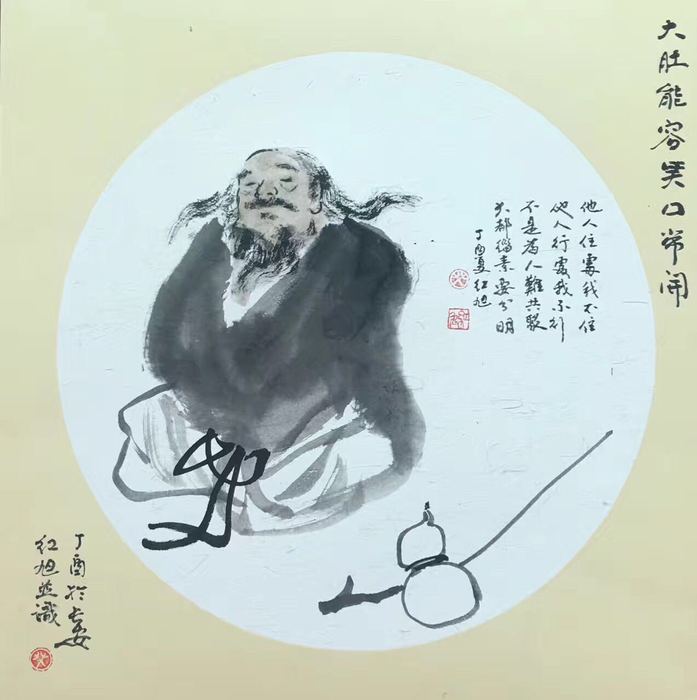 大肚能容笑口常開
他人住處我不住
他人行處我不行
不是為人難共聚
大都緇素要分明
丁酉夏红旭
丁酉於长安
红旭並識